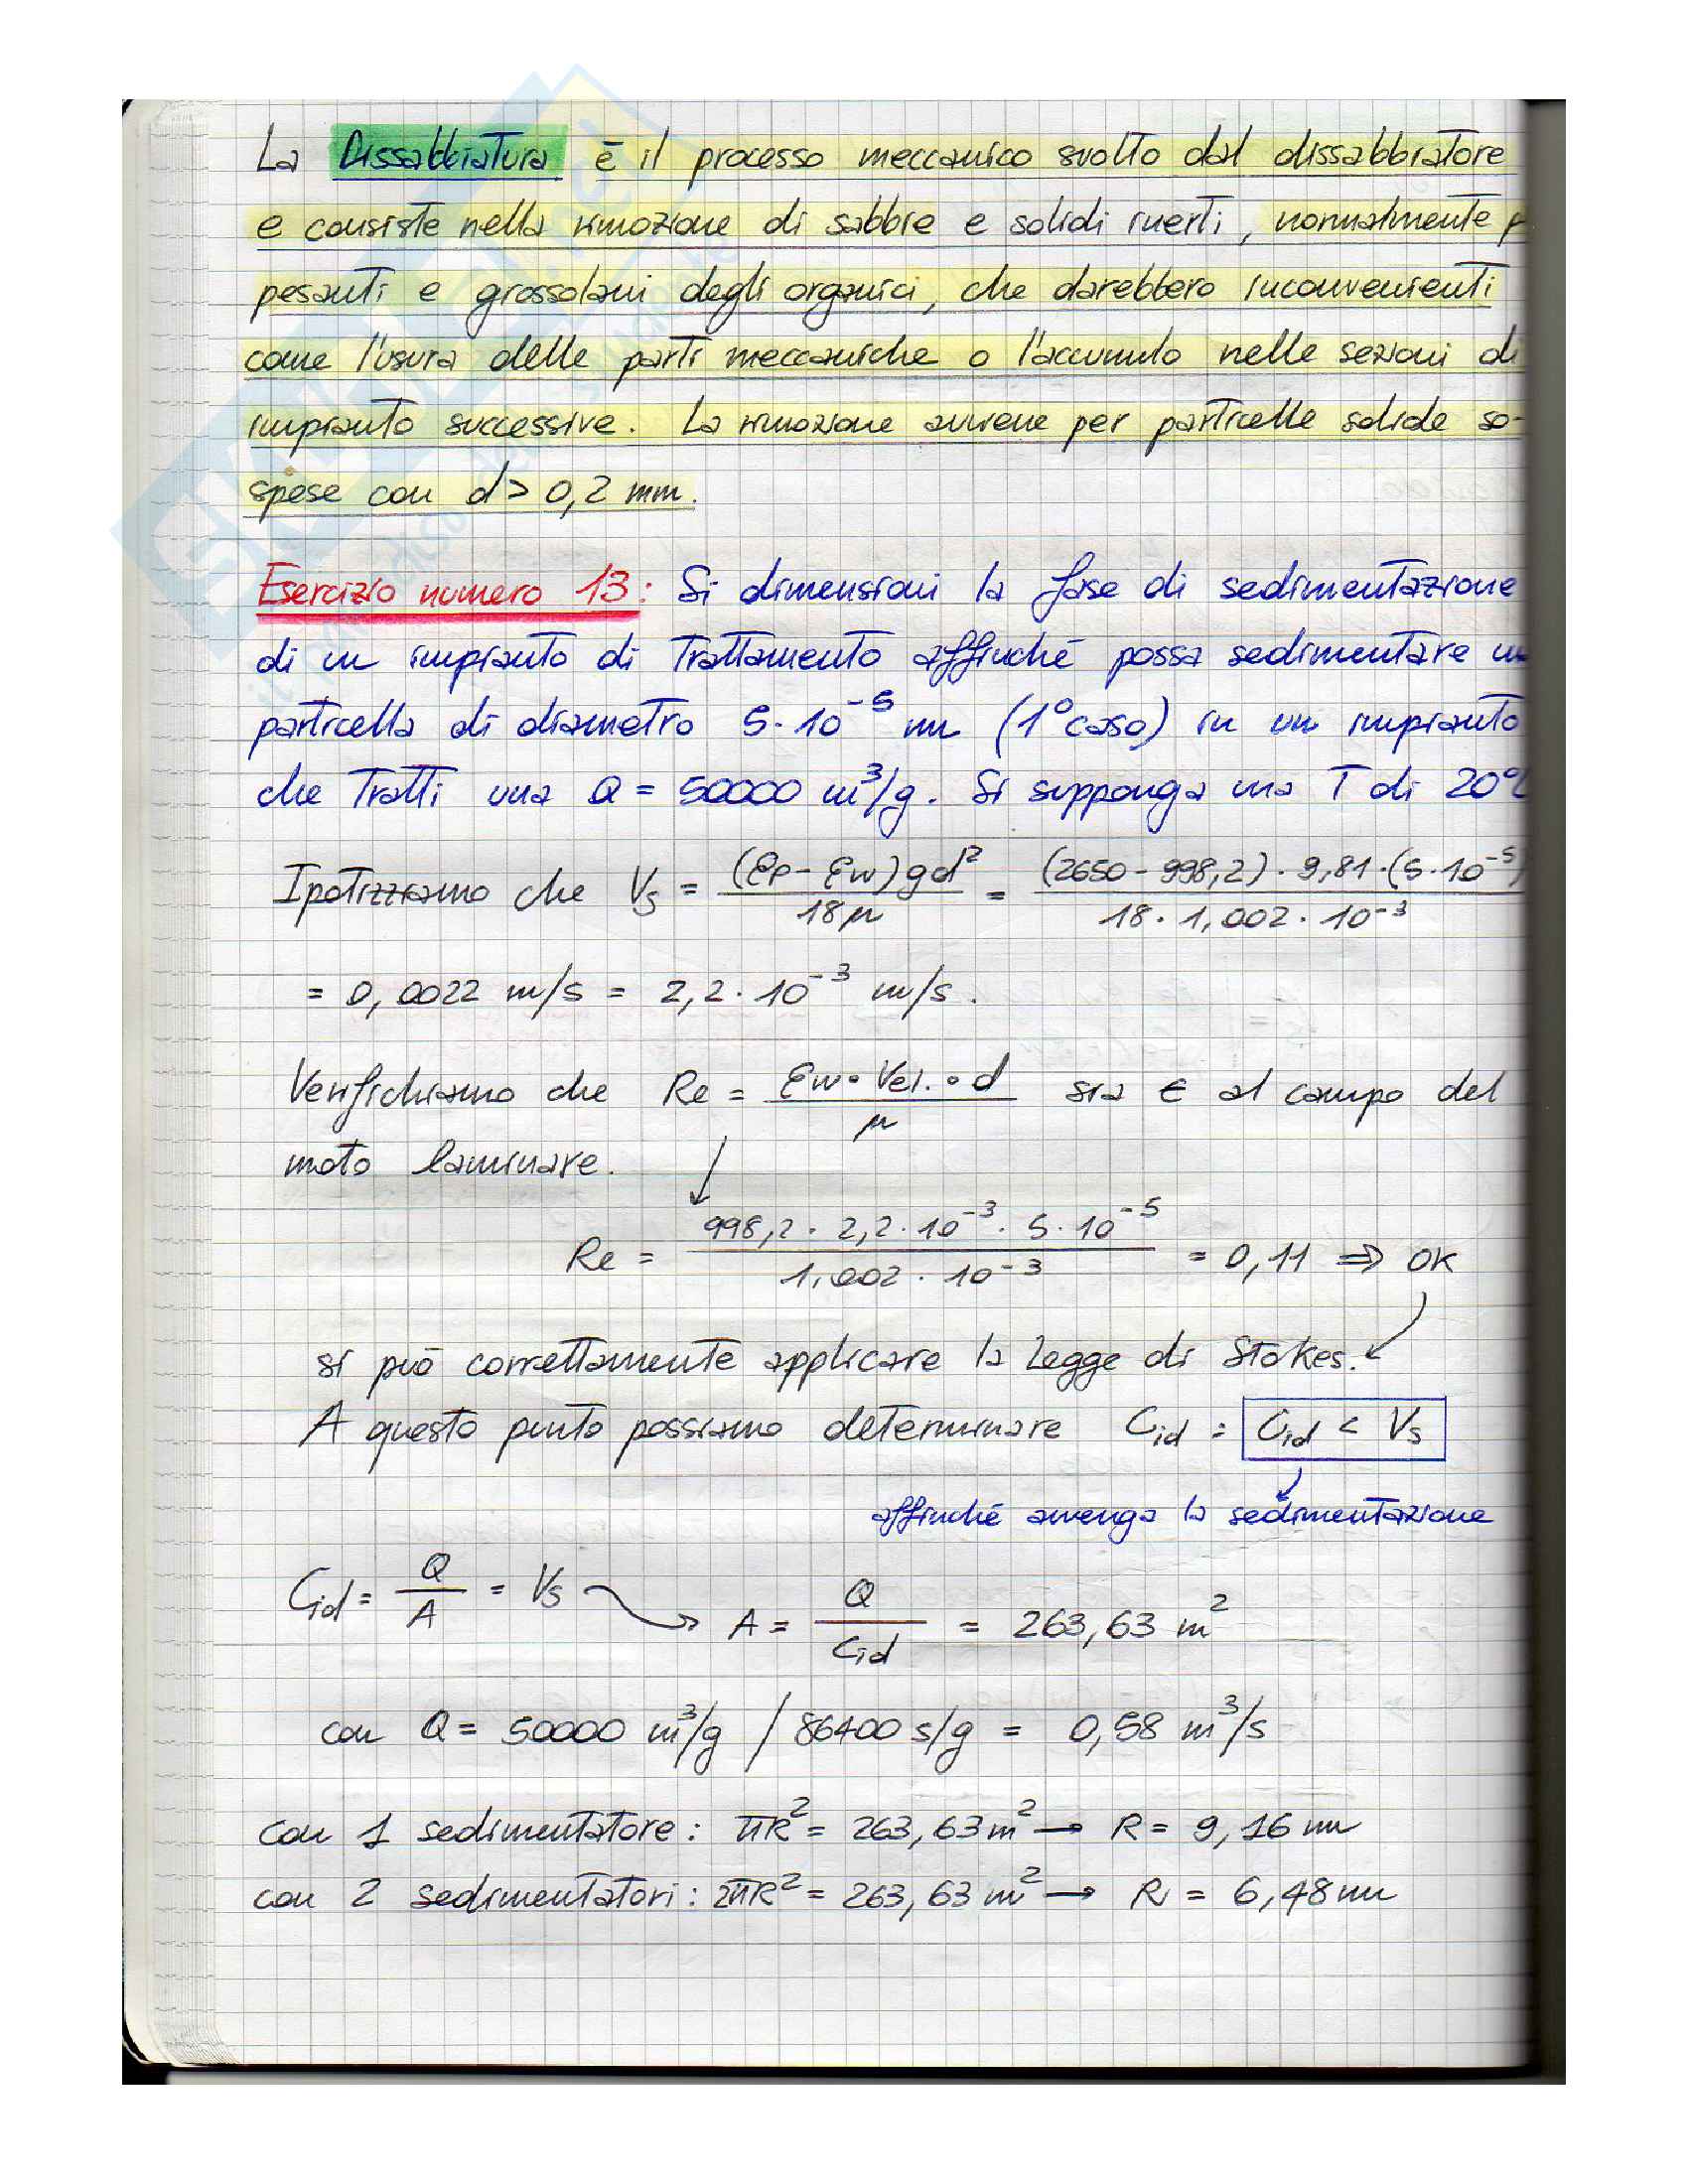 La Dissabbiatura è il processo meccanico svolto dal dissabbiatore
e consiste nella rimozione di sabbie e solidi inerti, normalmente
pesanti e grossolani degli organici, che darebbero inconvenienti
come l'usura delle parti meccaniche o l'accumulo nelle sezioni di
impianto successive. La rimozione avviene per particelle solide so-
spese con d > 0,2 mm.
Esercizio numero 13: Si dimensioni la fase di sedimentazione
di un impianto di trattamento affinché possa sedimentare
particella di diametro 5·10⁻⁵ m (1° caso) in un impianto
che tratti una Q = 50000 m³/g. Si supponga una T di 20°C
Ipotizziamo che Vs = (ρp - ρw) g d² / 18 μ = (2650 - 998,2) · 9,81 · (5·10⁻⁵) / 18 · 1,002 · 10⁻³
= 0,0022 m/s = 2,2 · 10⁻³ m/s.
Verifichiamo che Re = ρw · Vel. · d / μ sia ∈ al campo del
moto laminare.
Re = 998,2 · 2,2 · 10⁻³ · 5 · 10⁻⁵ / 1,002 · 10⁻³ = 0,11 ⇒ OK
si può correttamente applicare la Legge di Stokes.
A questo punto possiamo determinare Cid : Cid < Vs
affinché avvenga la sedimentazione
Cid = Q / A = Vs → A = Q / Cid = 263,63 m²
con Q = 50000 m³/g / 86400 s/g = 0,58 m³/s
con 1 sedimentatore: πR² = 263,63 m² → R = 9,16 m
con 2 sedimentatori: 2πR² = 263,63 m² → R = 6,48 m